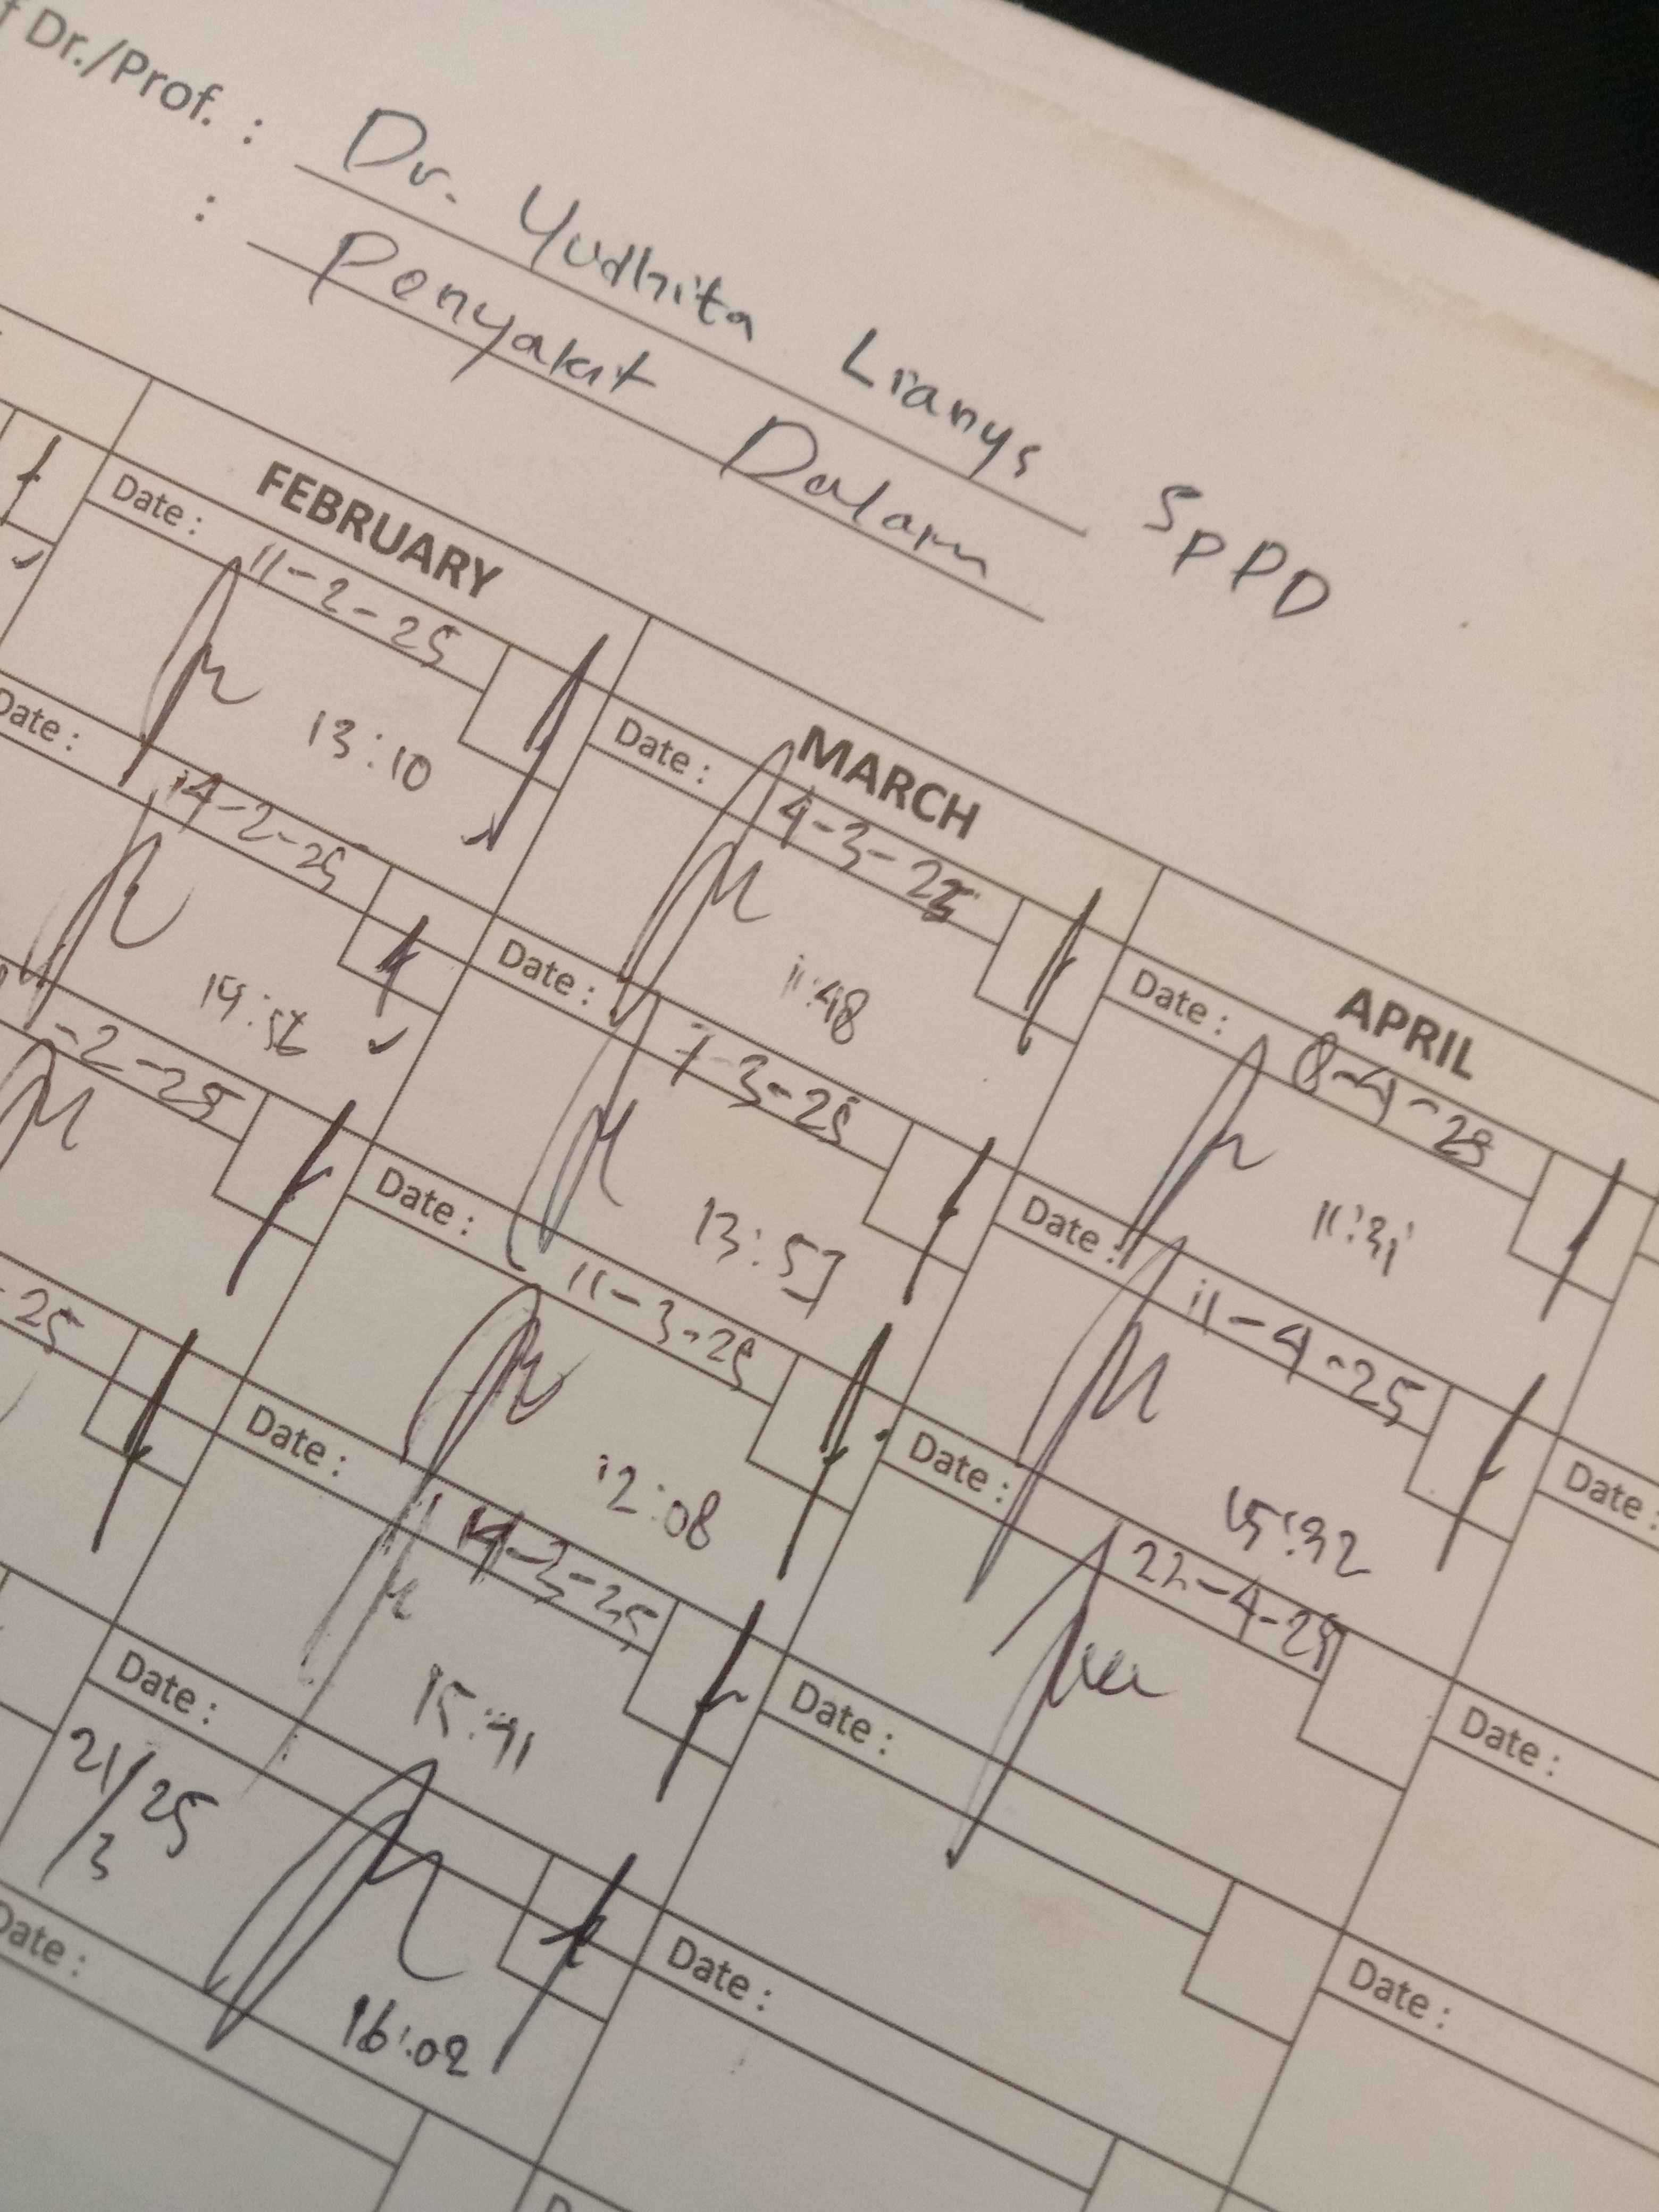 Dr./Prof. : Dr. Yudhita Lianys SpPD
: Penyakit Dalam
FEBRUARY
Date : 11-2-25
13:10
Date : 14-2-25
-2-25
-25
MARCH
Date : 4-3-25
11:48
Date : 7-3-25
13:57
Date : 11-3-25
12:08
Date : 14-3-25
15:41
Date :
21/3 25
16:02
Date :
APRIL
Date : 8-4-25
11:31
Date : 11-4-25
15:32
Date : 22-4-25
Date :
Date :
Date :
Date :
Date :